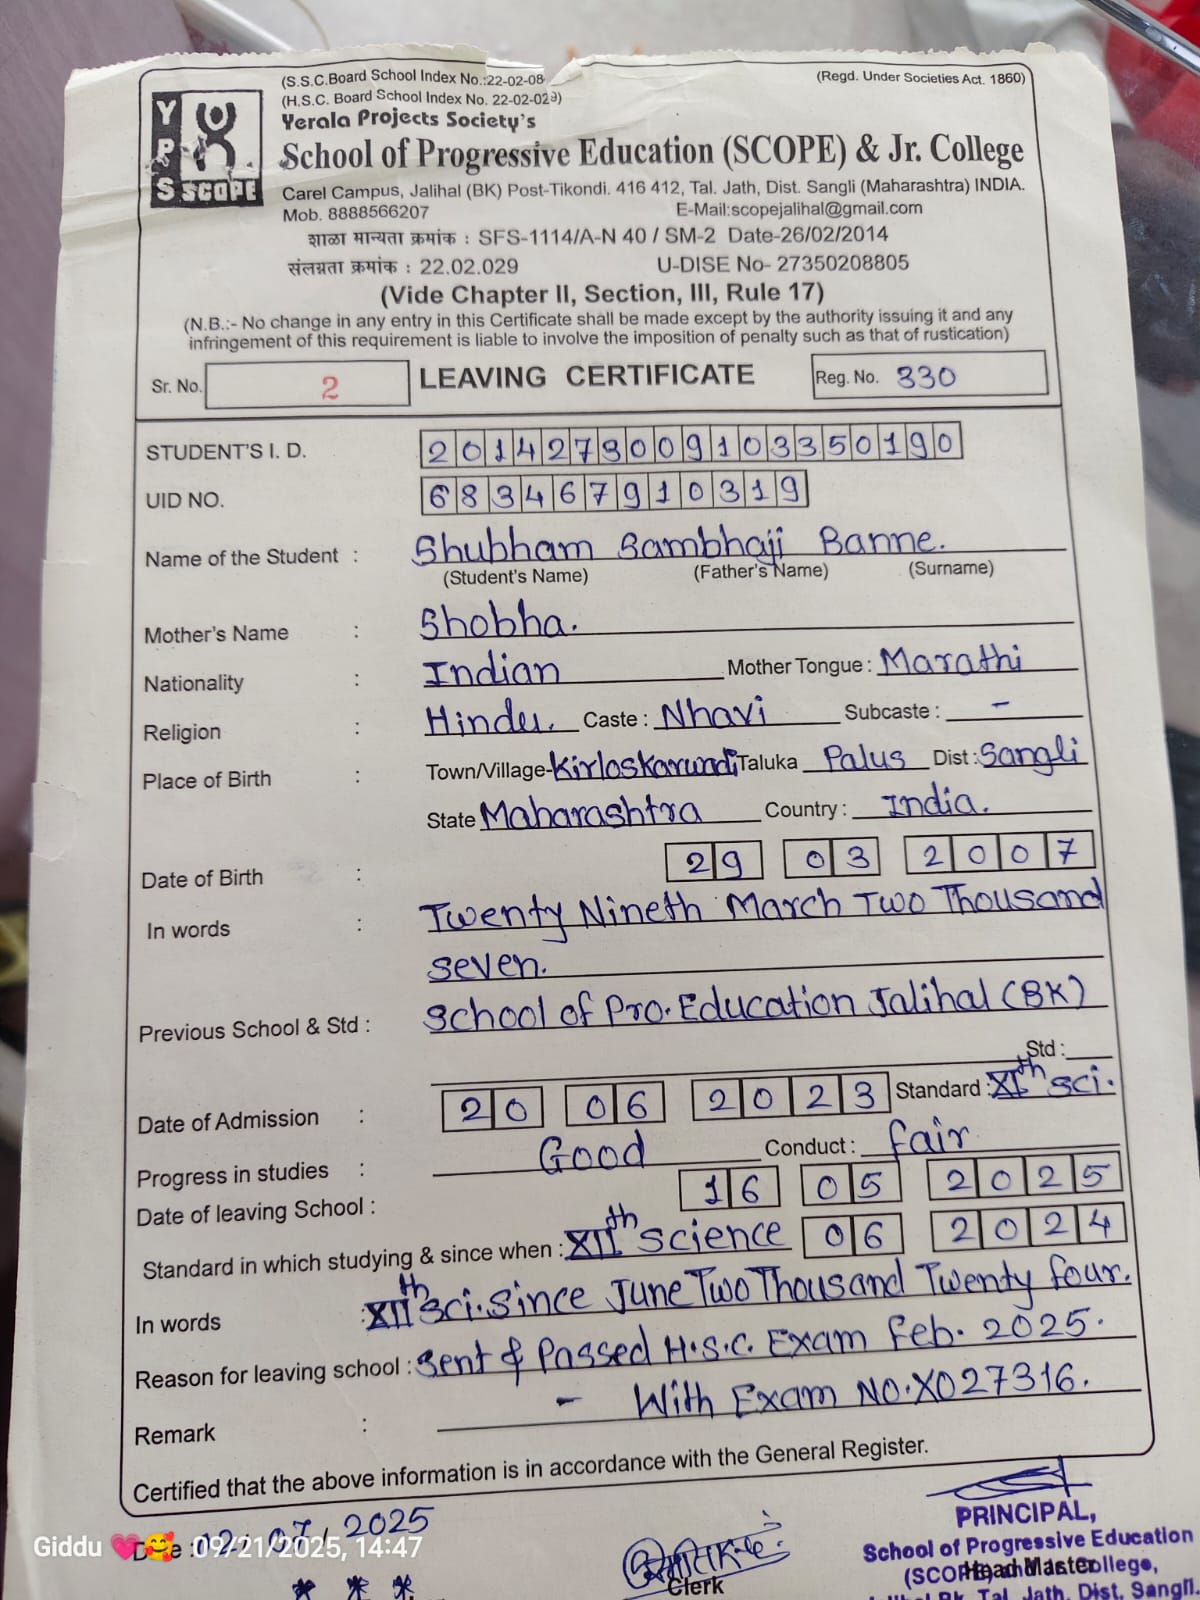 (S.S.C.Board School Index No.:22-02-08
(Regd. Under Societies Act. 1860)
(H.S.C. Board School Index No. 22-02-029)
YPS SCOPE
Yerala Projects Society's
School of Progressive Education (SCOPE) & Jr. College
Carel Campus, Jalihal (BK) Post-Tikondi. 416 412, Tal. Jath, Dist. Sangli (Maharashtra) INDIA.
Mob. 8888566207 E-Mail:scopejalihal@gmail.com
शाळा मान्यता क्रमांक : SFS-1114/A-N 40 / SM-2 Date-26/02/2014
संलग्नता क्रमांक : 22.02.029 U-DISE No- 27350208805
(Vide Chapter II, Section, III, Rule 17)
(N.B.:- No change in any entry in this Certificate shall be made except by the authority issuing it and any
infringement of this requirement is liable to involve the imposition of penalty such as that of rustication)
Sr. No. 2 LEAVING CERTIFICATE Reg. No. 330
STUDENT'S I. D. 2014273009103350190
UID NO. 683467910319
Name of the Student : Shubham Sambhaji Banne.
(Student's Name) (Father's Name) (Surname)
Mother's Name : Shobha.
Nationality : Indian Mother Tongue : Marathi
Religion : Hindu. Caste : Nhavi Subcaste : -
Place of Birth : Town/Village-Kirloskarwadi Taluka Palus Dist : Sangli
State Maharashtra Country : India.
Date of Birth : 29 03 2007
In words : Twenty Nineth March Two Thousand
seven.
Previous School & Std : School of Pro. Education Jalihal (BK)
Std :
Date of Admission : 20 06 2023 Standard : XIth sci.
Progress in studies : Good Conduct : fair
Date of leaving School : 16 05 2025
Standard in which studying & since when : XIIth science 06 2024
In words : XIIth sci. since June Two Thousand Twenty four.
Reason for leaving school : Sent & Passed H.S.C. Exam Feb. 2025.
- With Exam NO. X027316.
Remark :
Certified that the above information is in accordance with the General Register.
Date : 02/07/2025
Giddu 💗🥰 09/21/2025, 14:47
* * *
Clerk
PRINCIPAL,
School of Progressive Education
Head Master
Tal. Jath, Dist. Sangli.